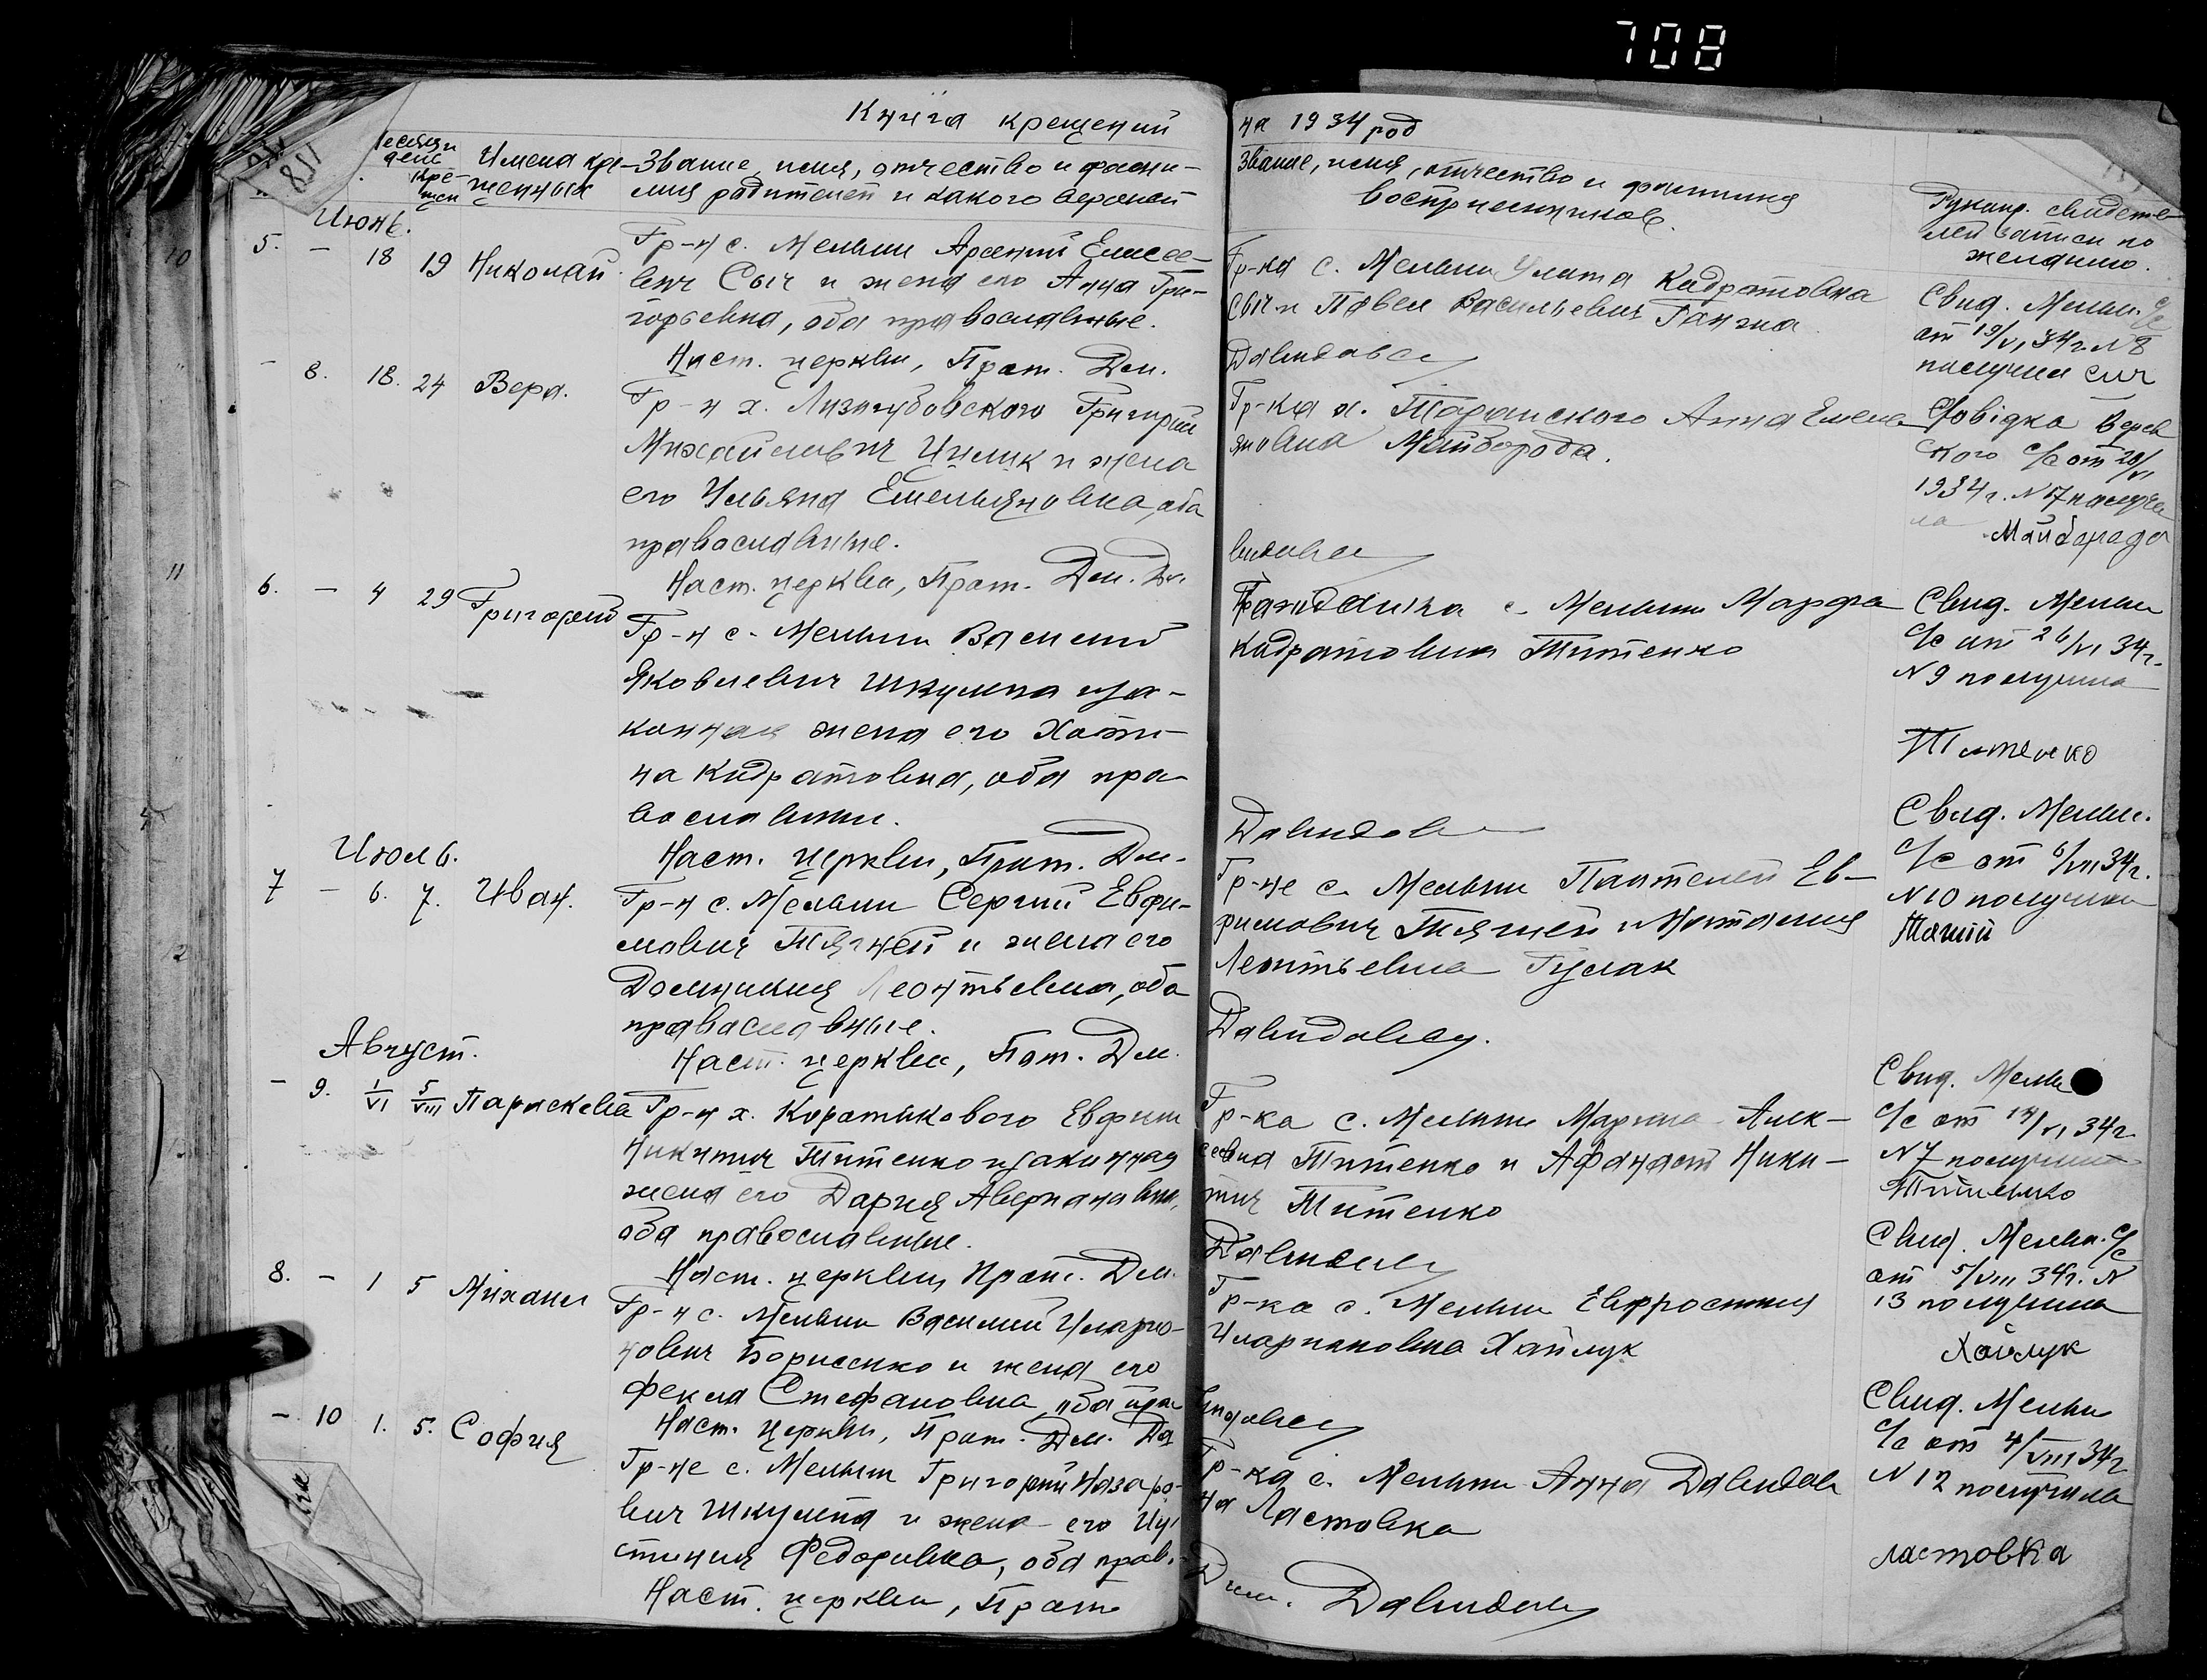 708
Книга крещений
на 1934 год
118
Месяц и
день
кре-
щен
Имена кре-
щенных
Звание, имя, отчество и фами-
лия родителей и какого вероисп
Звание, имя, отчество и фамилия
восприемников.
Рукопр. свидете-
лей записи по
желанию.
Июнь.
5. - 18 19 Николай
Гр-н с. Мельни Арсений Елисее-
вич Сыч и жена его Анна Гри-
горьевна, оба православные.
Наст. церкви, Прот. Дм.
Гр-ка с. Мельни Улита Кидратовна
Сыч и Павел Васильевич Ганжа
Давидова
Свид. Мельн. с/с
от 19/VI 34 г. N 8
получил Сич
- 8. 18. 24 Вера.
Гр-н х. Лизогубовского Григорий
Михайлович Цилик и жена
его Ульяна Емельяновна, оба
православные.
Наст. церкви, Прот. Дм. Да
Гр-ка х. Анна Емель
яновна Майборода.
видова
Довідка
кого с/с от 20/VI
1934 г. N 17 получи
ла Майборода
6. - 4 29 Григорий
Гр-н с. Мельни Василий
Яковлевич Шкулипа и за-
конная жена его Хоти-
на Кидратовна, оба пра-
вославны.
Наст. церкви, Прот. Дм.
Гражданка с Мельни Марфа
Кидратовна Титенко
Давидов
Свид. Мельни
с/с от 26/VI 34 г.
N 9 получила
Титенко
Июль.
7 - 6. 7. Иван.
Гр-н с. Мельни Сергий Евфи-
мович Тягней и жена его
Домникия Леонтьевна, оба
православные.
Наст. церкви, Пот. Дм.
Гр-не с. Мельни Пантелей Ев-
фимович Тягней и Наталия
Леонтьевна Гуслак
Давидова
Свид. Мельн.
с/с от 6/VII 34 г.
N 10 получил
Август.
- 9. 1/VI 5/VIII Параскева
Гр-н х. Коротькового Евфим
Никитич Титенко и законная
жена его Дария Аверкиевна,
оба православные.
Наст. церкви, Прот. Дм.
Гр-ка с. Мельни Марина Алек-
сеевна Титенко и Афанасий Ники-
тич Титенко
Давидов
Свид. Мельн
с/с от 14/VI 34 г.
N 7 получила
Титенко
8. - 1 5 Михаил
Гр-н с. Мельни Василий Иларио-
нович Борисенко и жена его
Фекла Стефановна, оба прав
Наст. церкви, Прот. Дм. Да
Гр-ка с. Мельни Евфросиния
Иларионовна Хайлук
видова
Свид. Мельн. с/с
от 5/VIII 34 г. N
13 получила
Хайлук
- 10 1. 5. София
Гр-не с. Мельни Григорий Назаро-
вич Шкулипа и жена его Иу
стиния Федоровна, оба прав.
Наст. церкви, Прот
Гр-ка с. Мельни Анна Давидов
на Ластовка
Дим. Давидов
Свид. Мельни
с/с от 4/VIII 34 г.
N 12 получила
ластовка